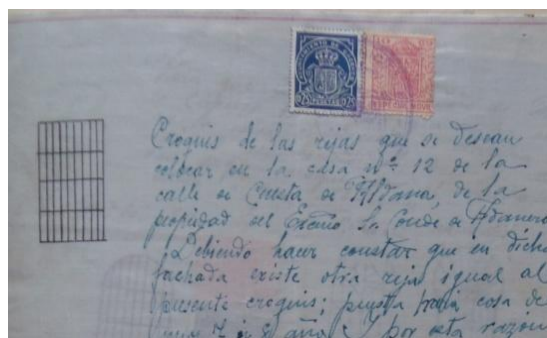 Croquis de las rejas que se desean
colocar en la casa nº 12 de la
calle de Cuesta de Aldana, de la
propiedad del Excmo. Sr. Conde de
Debiendo hacer constar que en dicha
fachada existe otra reja igual al
presente croquis; puesta hará cosa de
7 u 8 años y por esta razón